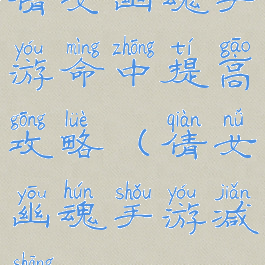 倩女幽魂手
yóu mìng zhōng tí gāo
游命中提高
gōng lüè qiàn nǚ
攻略（倩女
yōu hún shǒu yóu jiǎn
幽魂手游减
shāng